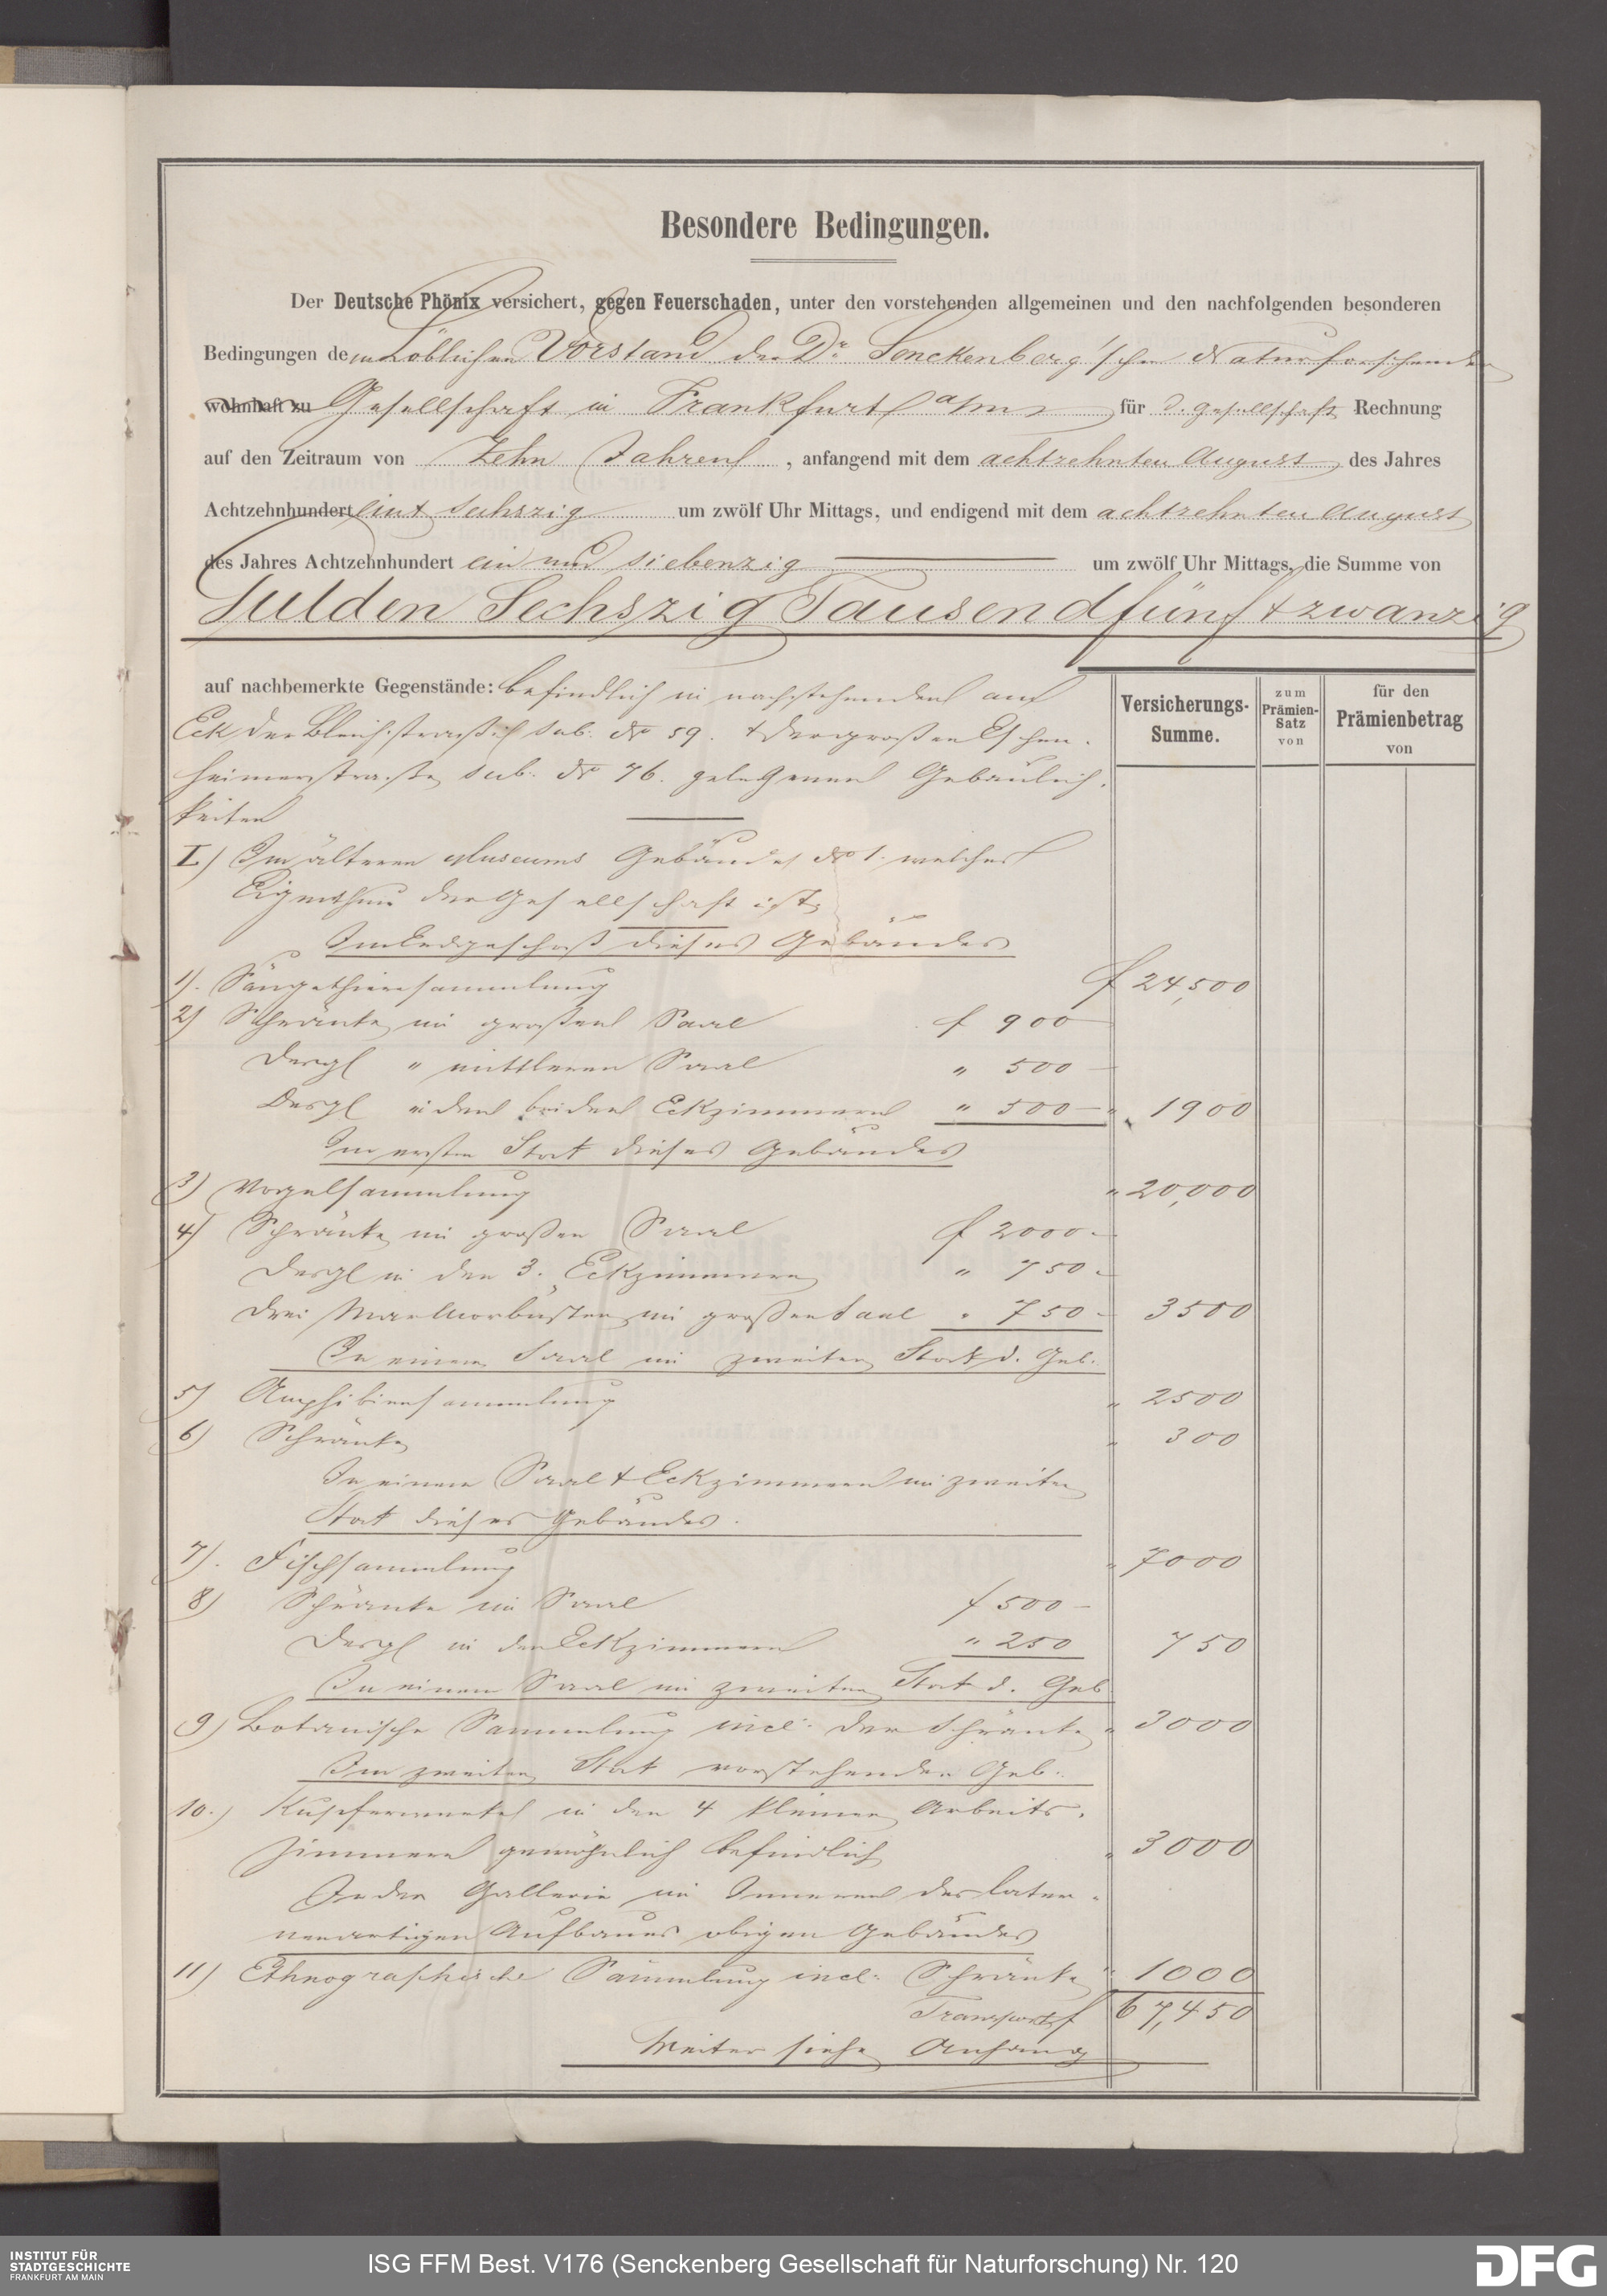 Besondere Bedingungen.
Der Deutsche Phönix versichert, gegen Feuerschaden, unter den vorstehenden allgemeinen und den nachfolgenden besonderen
Bedingungen dem Löblichen Vorstand der Dr. Senckenberg'schen Naturforschenden
wohnhaft zu Gesellschaft in Frankfurt a/m für d. Gesellschaft Rechnung
auf den Zeitraum von Zehn Jahren, anfangend mit dem achtzehnten August des Jahres
Achtzehnhundert ein & sechszig um zwölf Uhr Mittags, und endigend mit dem achtzehnten August
des Jahres Achtzehnhundert ein und siebenzig um zwölf Uhr Mittags, die Summe von
Gulden Sechszig Tausend fünf & zwanzig
auf nachbemerkte Gegenstände: befindlich in nachstehenden am
Versicherungs-Summe.
zum Prämien-Satz von
für den Prämienbetrag von
Eck der Bleichstraße sub. No 59. & der großen Eschen-
heimerstraße sub. No 76. gelegenen Gebäulich-
keiten
I.) Im älteren Museums Gebäude No 1. welches
Eigenthum der Gesellschaft ist,
Im Erdgeschoß dieses Gebäudes
1). Säugethiersammlung f 24,500
2) Schränke im großen Saal f 900
Desgl " mittleren Saal " 500 —
Desgl in den beiden Eckzimmern " 500 — " 1900
Im ersten Stock dieses Gebäudes
3) Vogelsammlung " 20,000
4) Schränke im großen Saal f 2000.-
Desgl in den 3. Eckzimmern " 750.-
Drei Marmorbüsten im großen Saal " 750 - 3500
In einem Saal im zweiten Stock d. Geb.
5) Amphibiensammlung " 2500
6) Schränke " 300
In einem Saal & Eckzimmern im zweiten
Stock dieses Gebäudes.
7). Fischsammlung " 7000
8) Schränke im Saal f 500 -
Desgl in den Eckzimmern " 250 750
In einem Saal im zweiten Stock d. Geb
9) Botanische Sammlung incl. der Schränke " 3000
Im zweiten Stock vorstehenden Geb.
10.) Kupferwerke in den 4 kleinen Arbeits-
zimmern gewöhnlich befindlich " 3000
In der Gallerie im Inneren des later-
nenartigen Aufbaues obigen Gebäudes
11) Ethnographische Sammlung incl. Schränke " 1000
Transport f 67,450
Weiter siehe Anhang
INSTITUT FÜR
STADTGESCHICHTE
FRANKFURT AM MAIN
ISG FFM Best. V176 (Senckenberg Gesellschaft für Naturforschung) Nr. 120
DFG